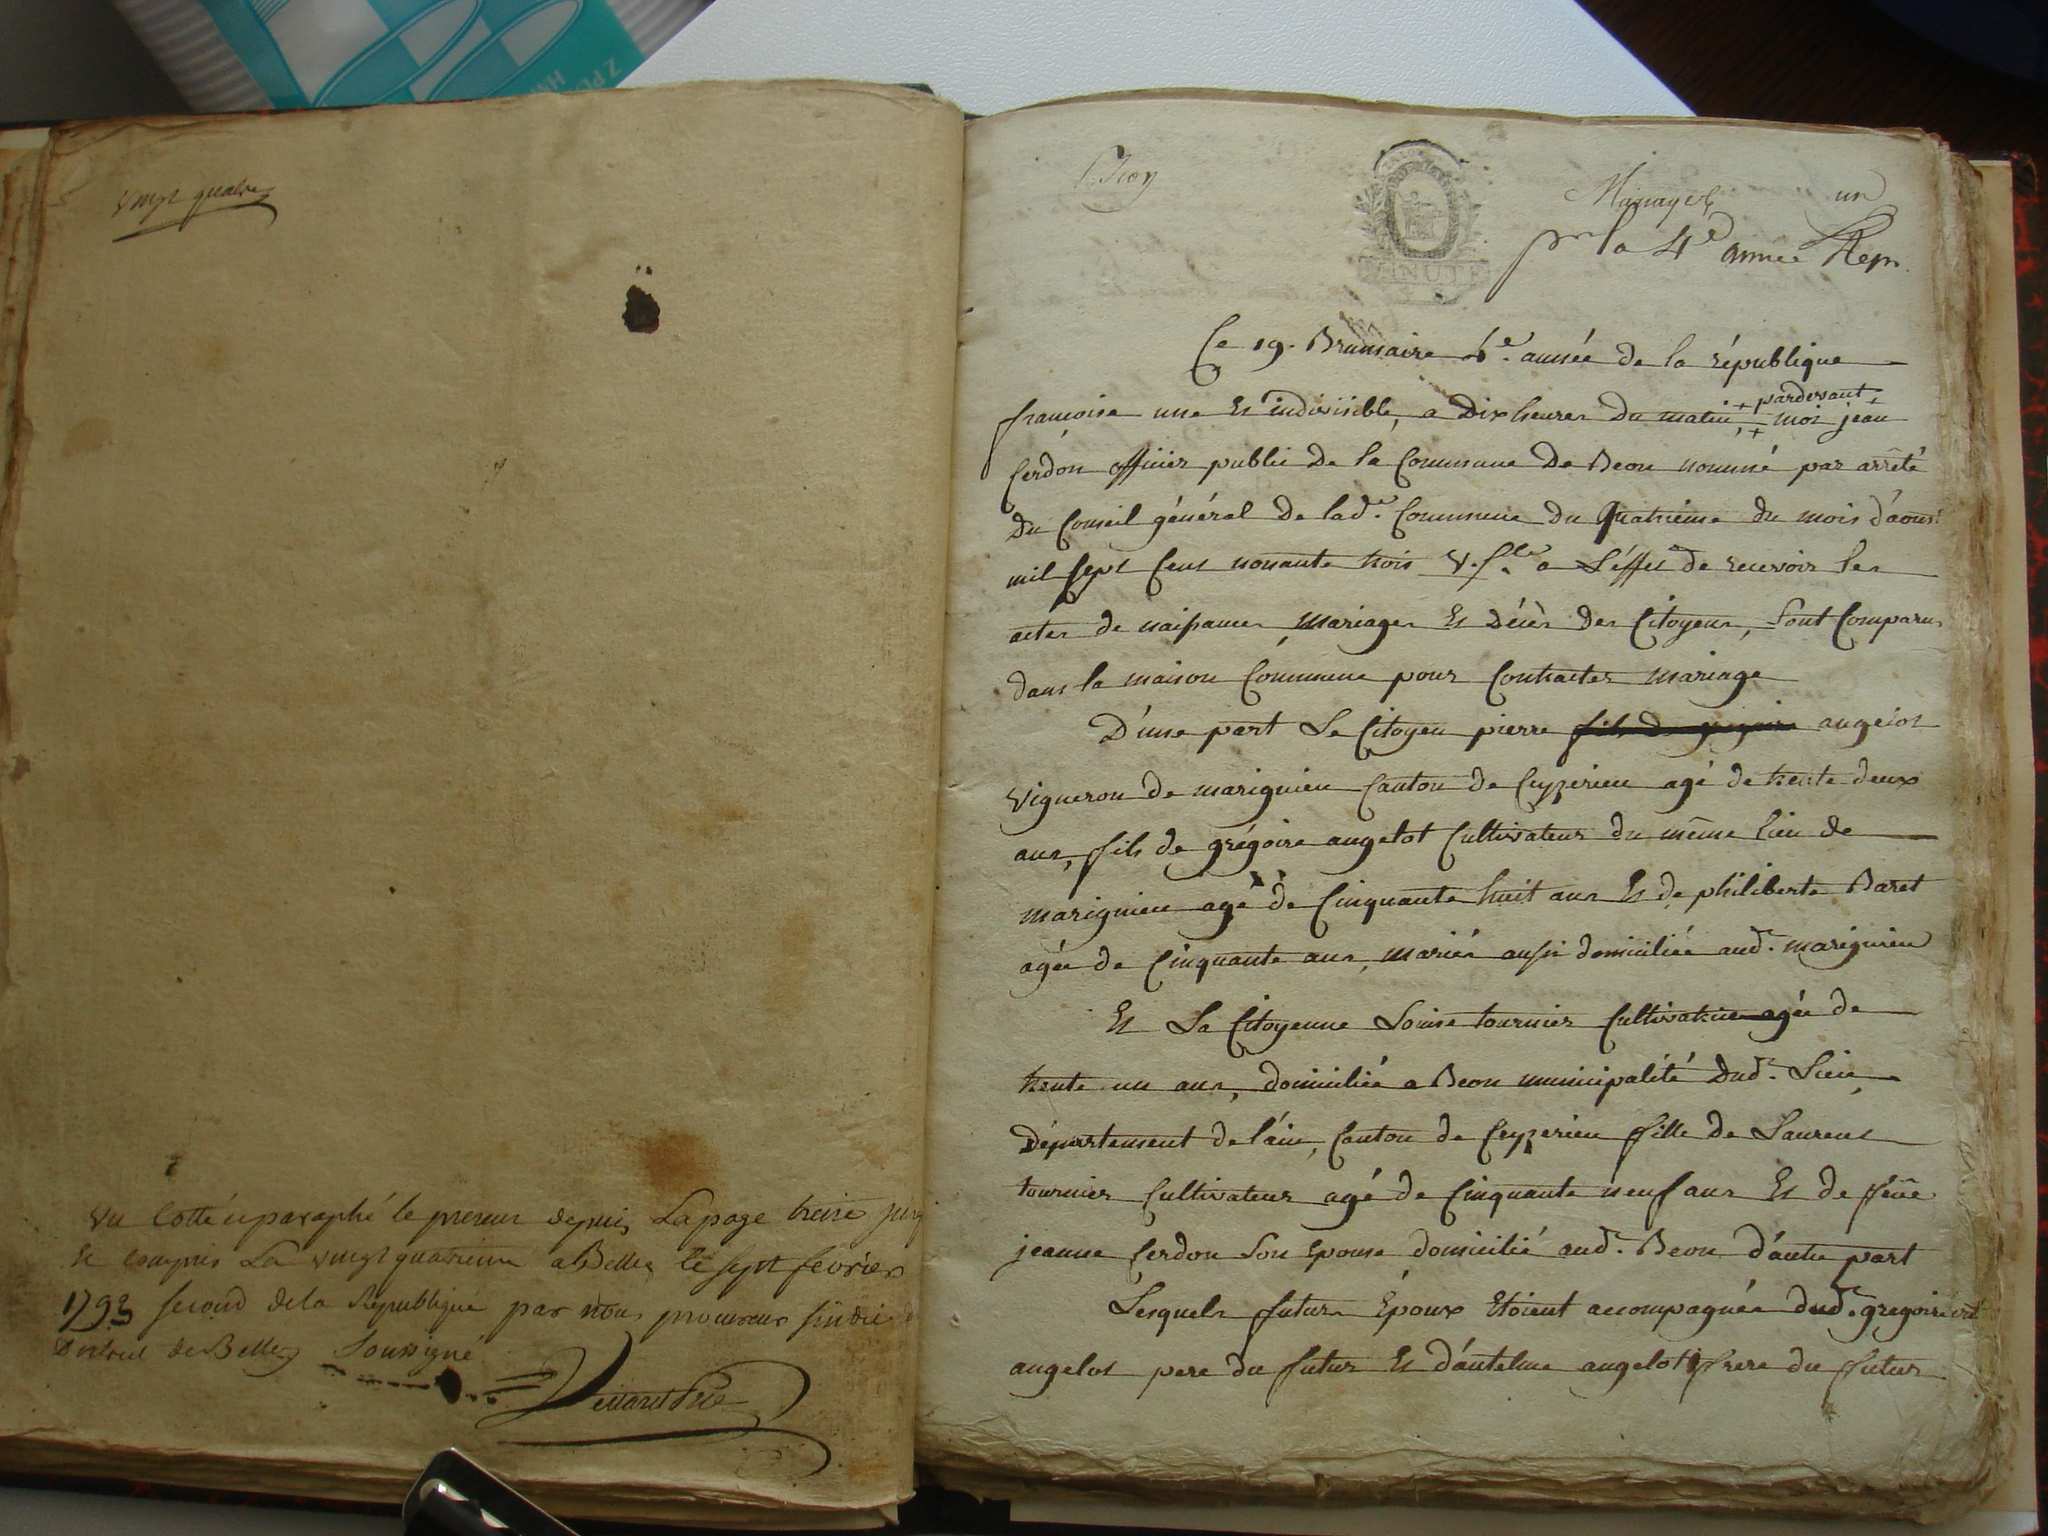 Vingt quatre
Vu cotté et paraphé le present depuis La page treize jusq
et compris La vingt quatrieme a Belley le sept fevrier
1793 second de la Republique par nous procureur sindic d
District de Belley Soussigné
Mariages un
pr la 4e année Rep.
MINUTE
Ce 19. Brumaire 4e. année de la république
françoise une Et indivisible, a Dix heures Du matin, + pardevant + moi jean
Cerdon officier public De la Commune De Beon nommé par arrêté
Du Conseil général De lade. Commune du Quatrieme du mois d'aoust
mil sept Cent nonante trois V. Sle. a L'éffet de recevoir les
actes de naissances, Mariages Et Décès Des Citoyens, Sont Comparus
dans la maison Commune pour Contracter mariage
D'une part Le Citoyen pierre fils de gregoire angelot
Vigneron de marignieu Canton de Ceyzerieu agé de trente deux
ans, fils de grégoire angelot Cultivateur du même lieu de
marignieu agé de Cinquante huit ans Et de philiberte Baret
agée de Cinquante ans, mariés aussi domiciliée aud. marignieu
Et La Citoyenne Louise tournier Cultivatrice agée de
trente un ans, domiciliée a Beon municipalité Dud. Lieu,
Département de l'áin, Canton de Ceyzerieu fille de Laurent
tournier Cultivateur agé de Cinquante neuf ans Et de feüe
jeanne Cerdon Son Epouse domicilié aud. Beon d'autre part
Lesquels futurs Époux Etoient accompagnés dud. gregoire
angelot pere du futur Et d'antelme angelot frere du futur